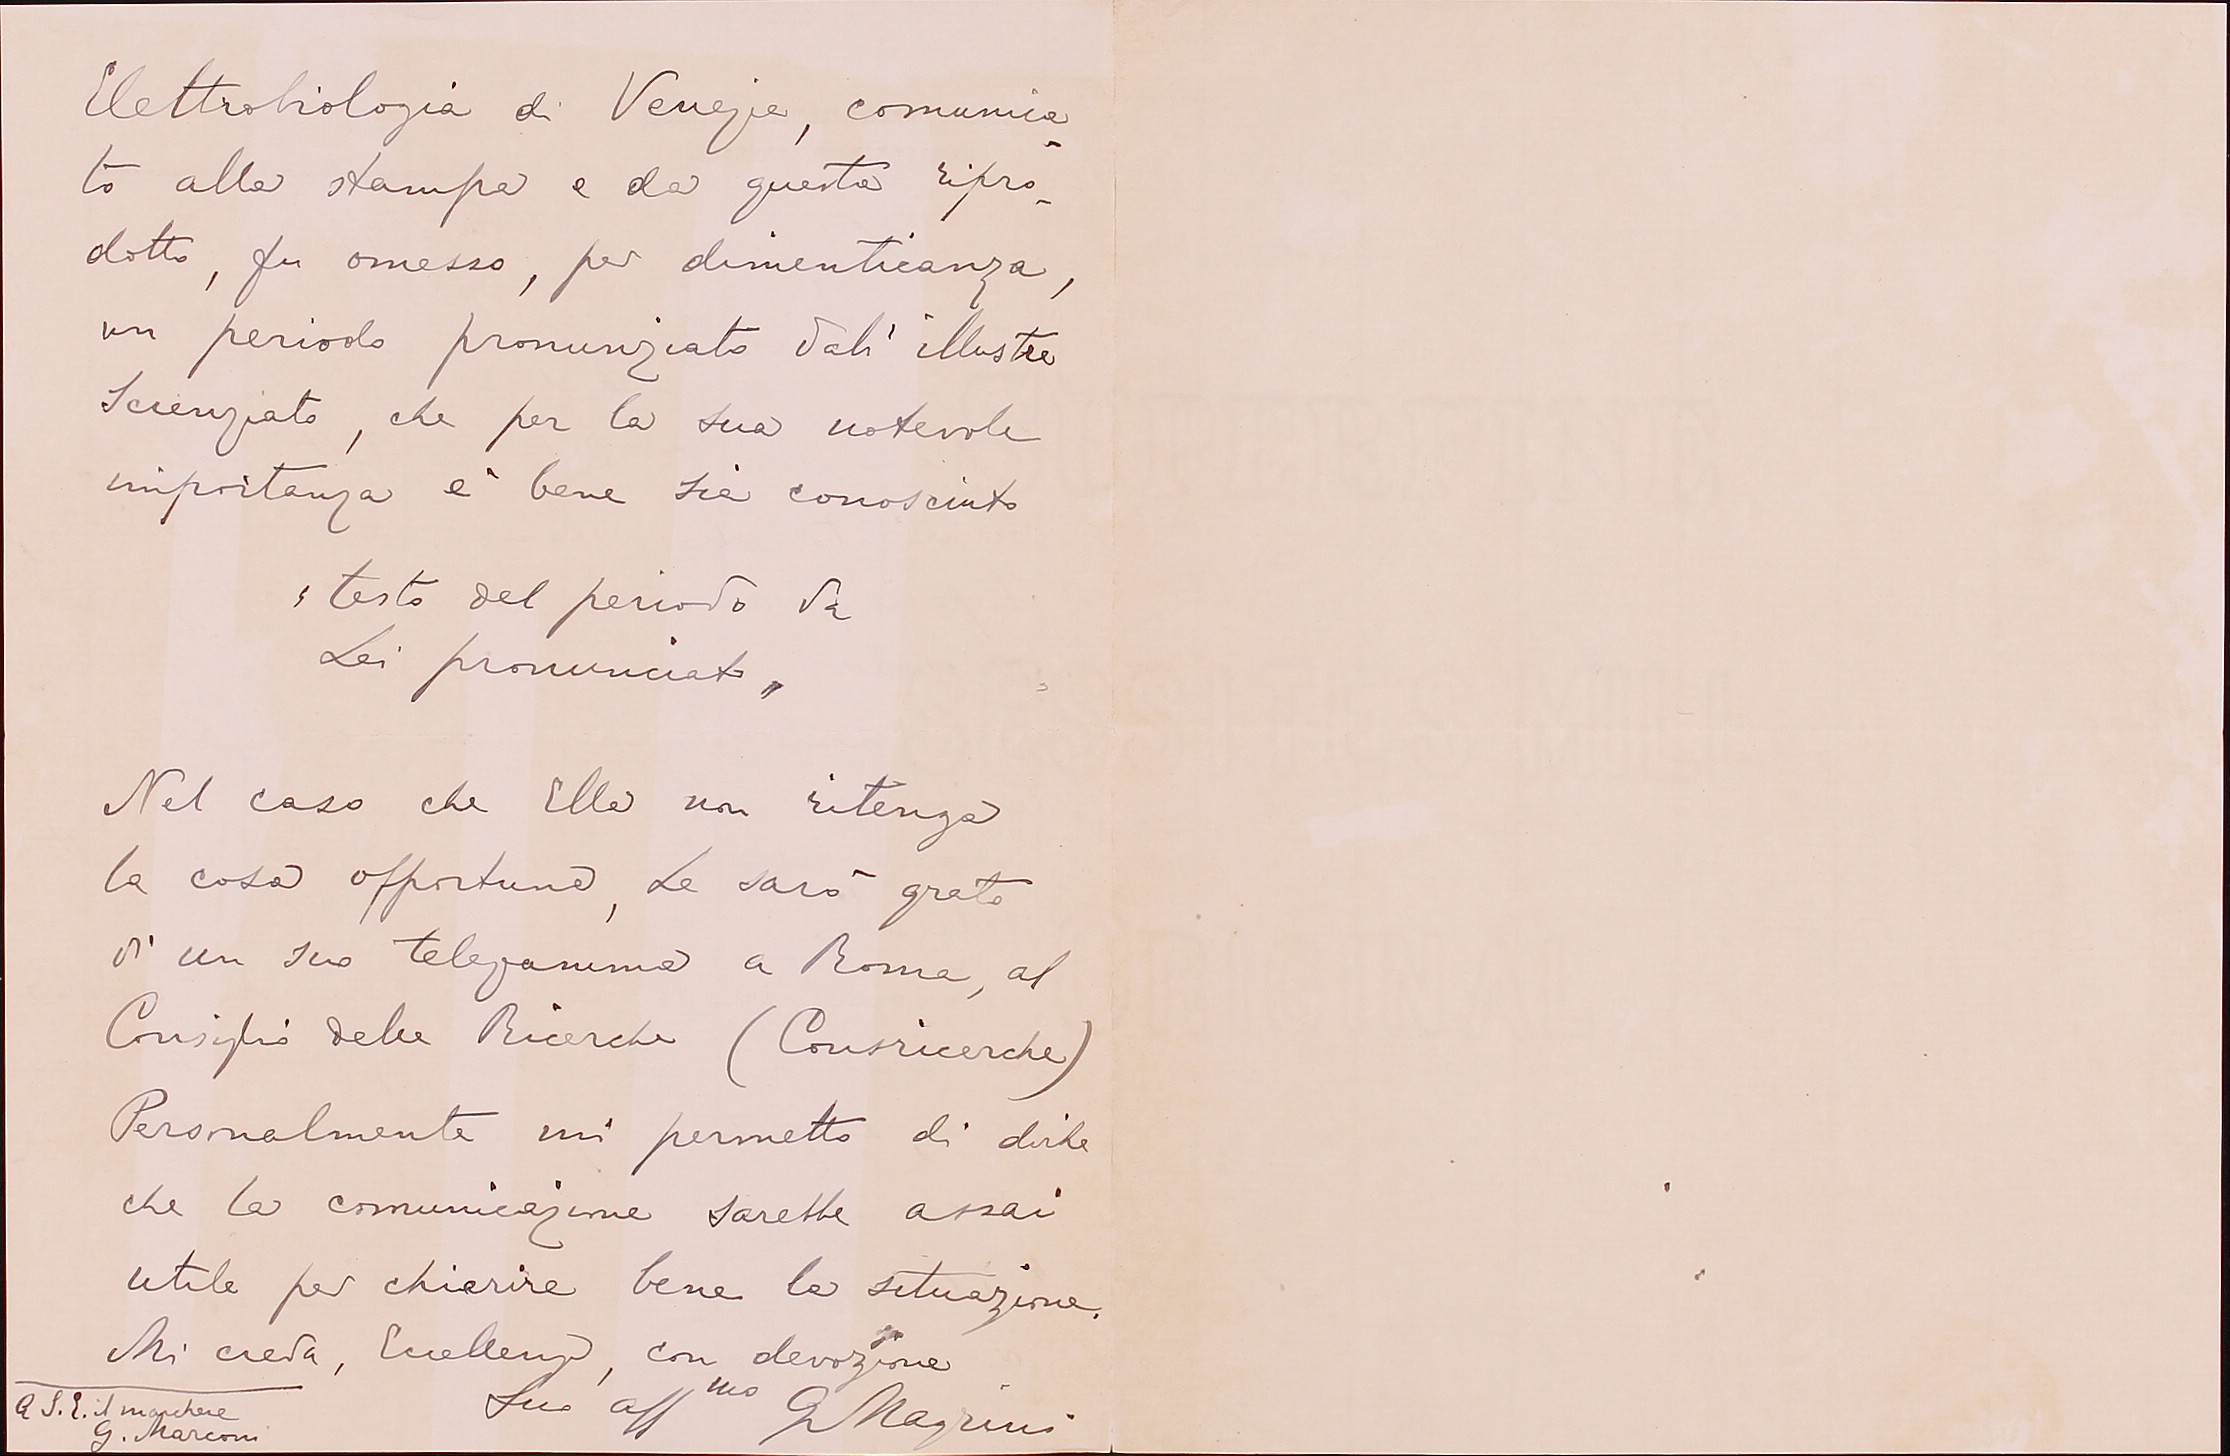 Elettrobiologia di Venezia, comunica-
to alla stampa e da questa ripro-
dotto, fu omesso, per dimenticanza,
un periodo pronunziato dall'illustre
Scienziato, che per la sua notevole
importanza è bene sia conosciuto
"testo del periodo da
Lei pronunciato"
Nel caso che Ella non ritenga
la cosa opportuna, Le sarò grato
di un suo telegramma a Roma, al
Consiglio delle Ricerche (Consricerche)
Personalmente mi permetto di dirLe
che la comunicazione sarebbe assai
utile per chiarire bene la situazione.
Mi creda, Eccellenza, con devozione
Suo aff mo G Magrini
A S.E. il marchese
G. Marconi